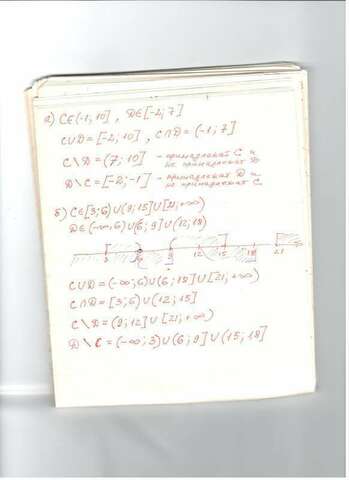 а) C∈(-1; 10] , D∈[-2; 7]
C∪D=[-2; 10] , C∩D=(-1; 7]
C\D=(7; 10] - принадлежит C и
не принадлежит D
D\C=[-2; -1] - принадлежит D и
не принадлежит C.
б) C∈[3; 6)∪(9; 15]∪[21; +∞)
D∈(-∞; 6)∪(6; 9]∪(12; 18)
3 6 9 12 15 18 21
C∪D=(-∞; 6)∪(6; 18]∪[21; +∞)
C∩D=[3; 6)∪(12; 15]
C\D=(9; 12]∪[21; +∞)
D\C=(-∞; 3)∪(6; 9]∪(15; 18]